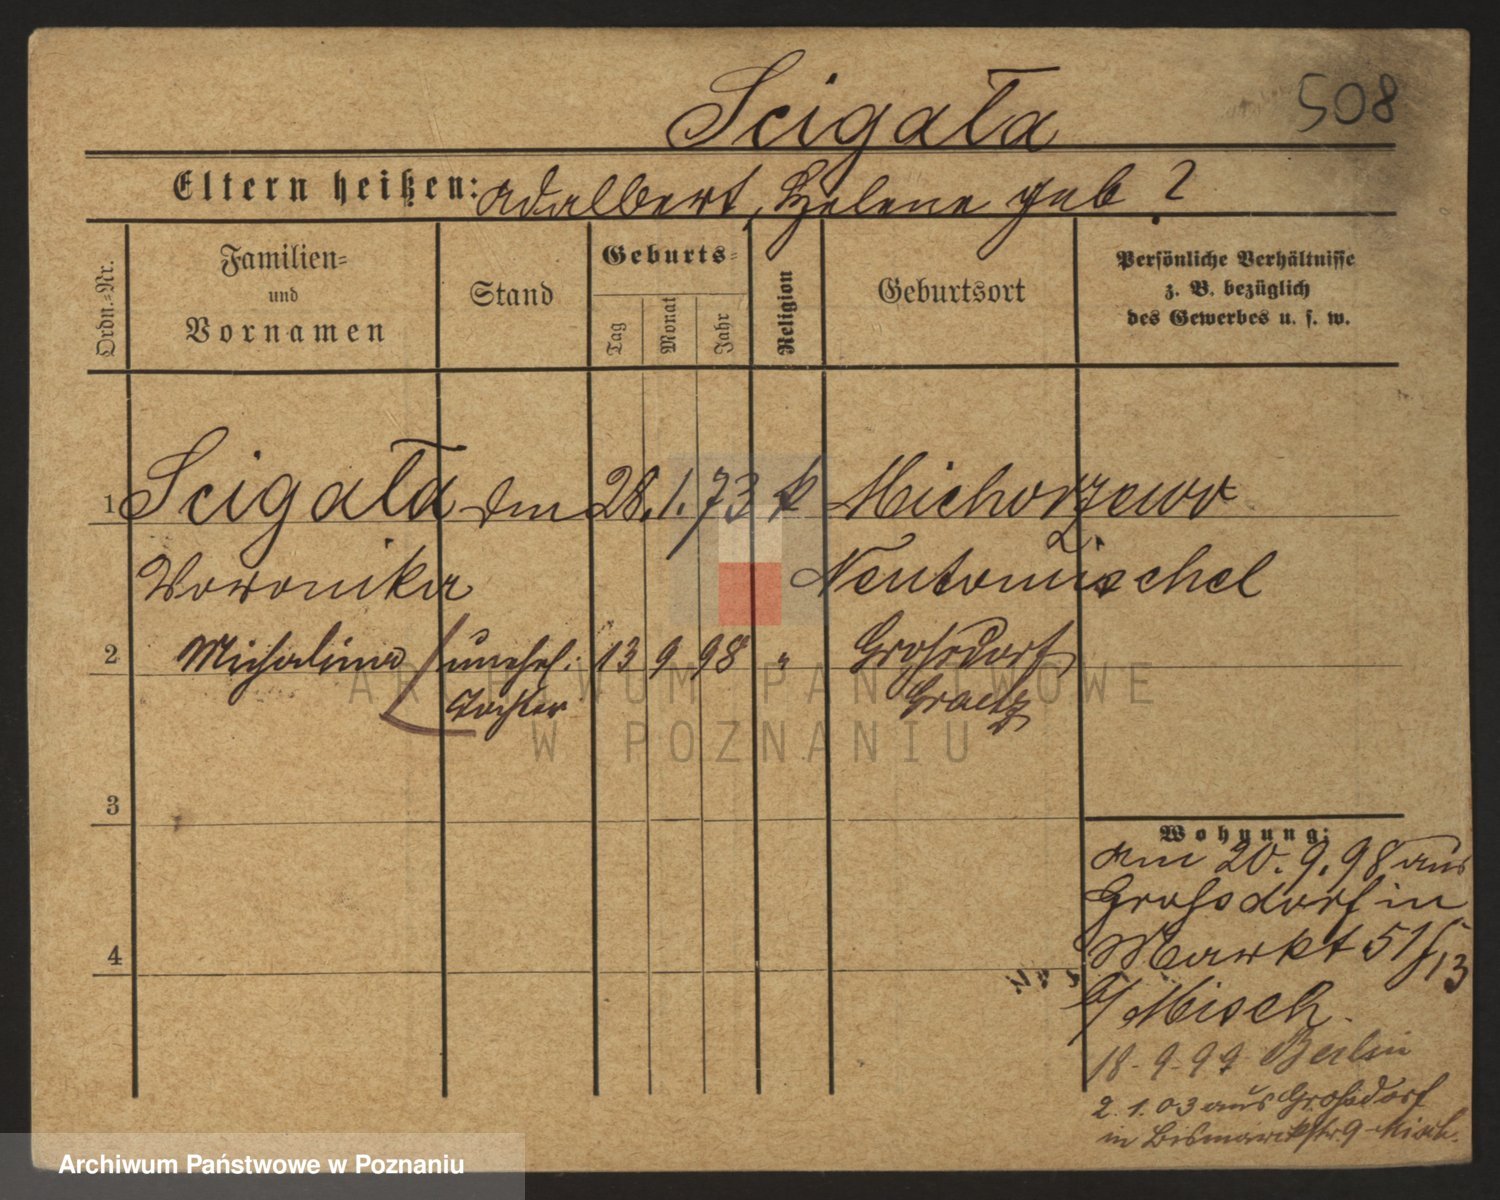 Scigała
508
Eltern heißen: Adalbert, Helene geb ?
Ordn.=Nr.
Familien=
und
Vornamen
Stand
Geburts=
Tag
Monat
Jahr
Religion
Geburtsort
Persönliche Verhältnisse
z. B. bezüglich
des Gewerbes u. s. w.
1 Scigała 28. 1. 73 k Michorzewo
Woronika Neutomischel
2 Michalina unehel. 13 9 98 " Grossdorf
Tochter Graetz
3
4
Wohnung:
am 20. 9. 98 aus
Grossdorf in
Markt 51/13
b/ Misch.
18-9-99 Berlin
2. 1. 03 aus Grossdorf
in Bismarckstr. 9 Misch.
ARCHIWUM PAŃSTWOWE
W POZNANIU
Archiwum Państwowe w Poznaniu